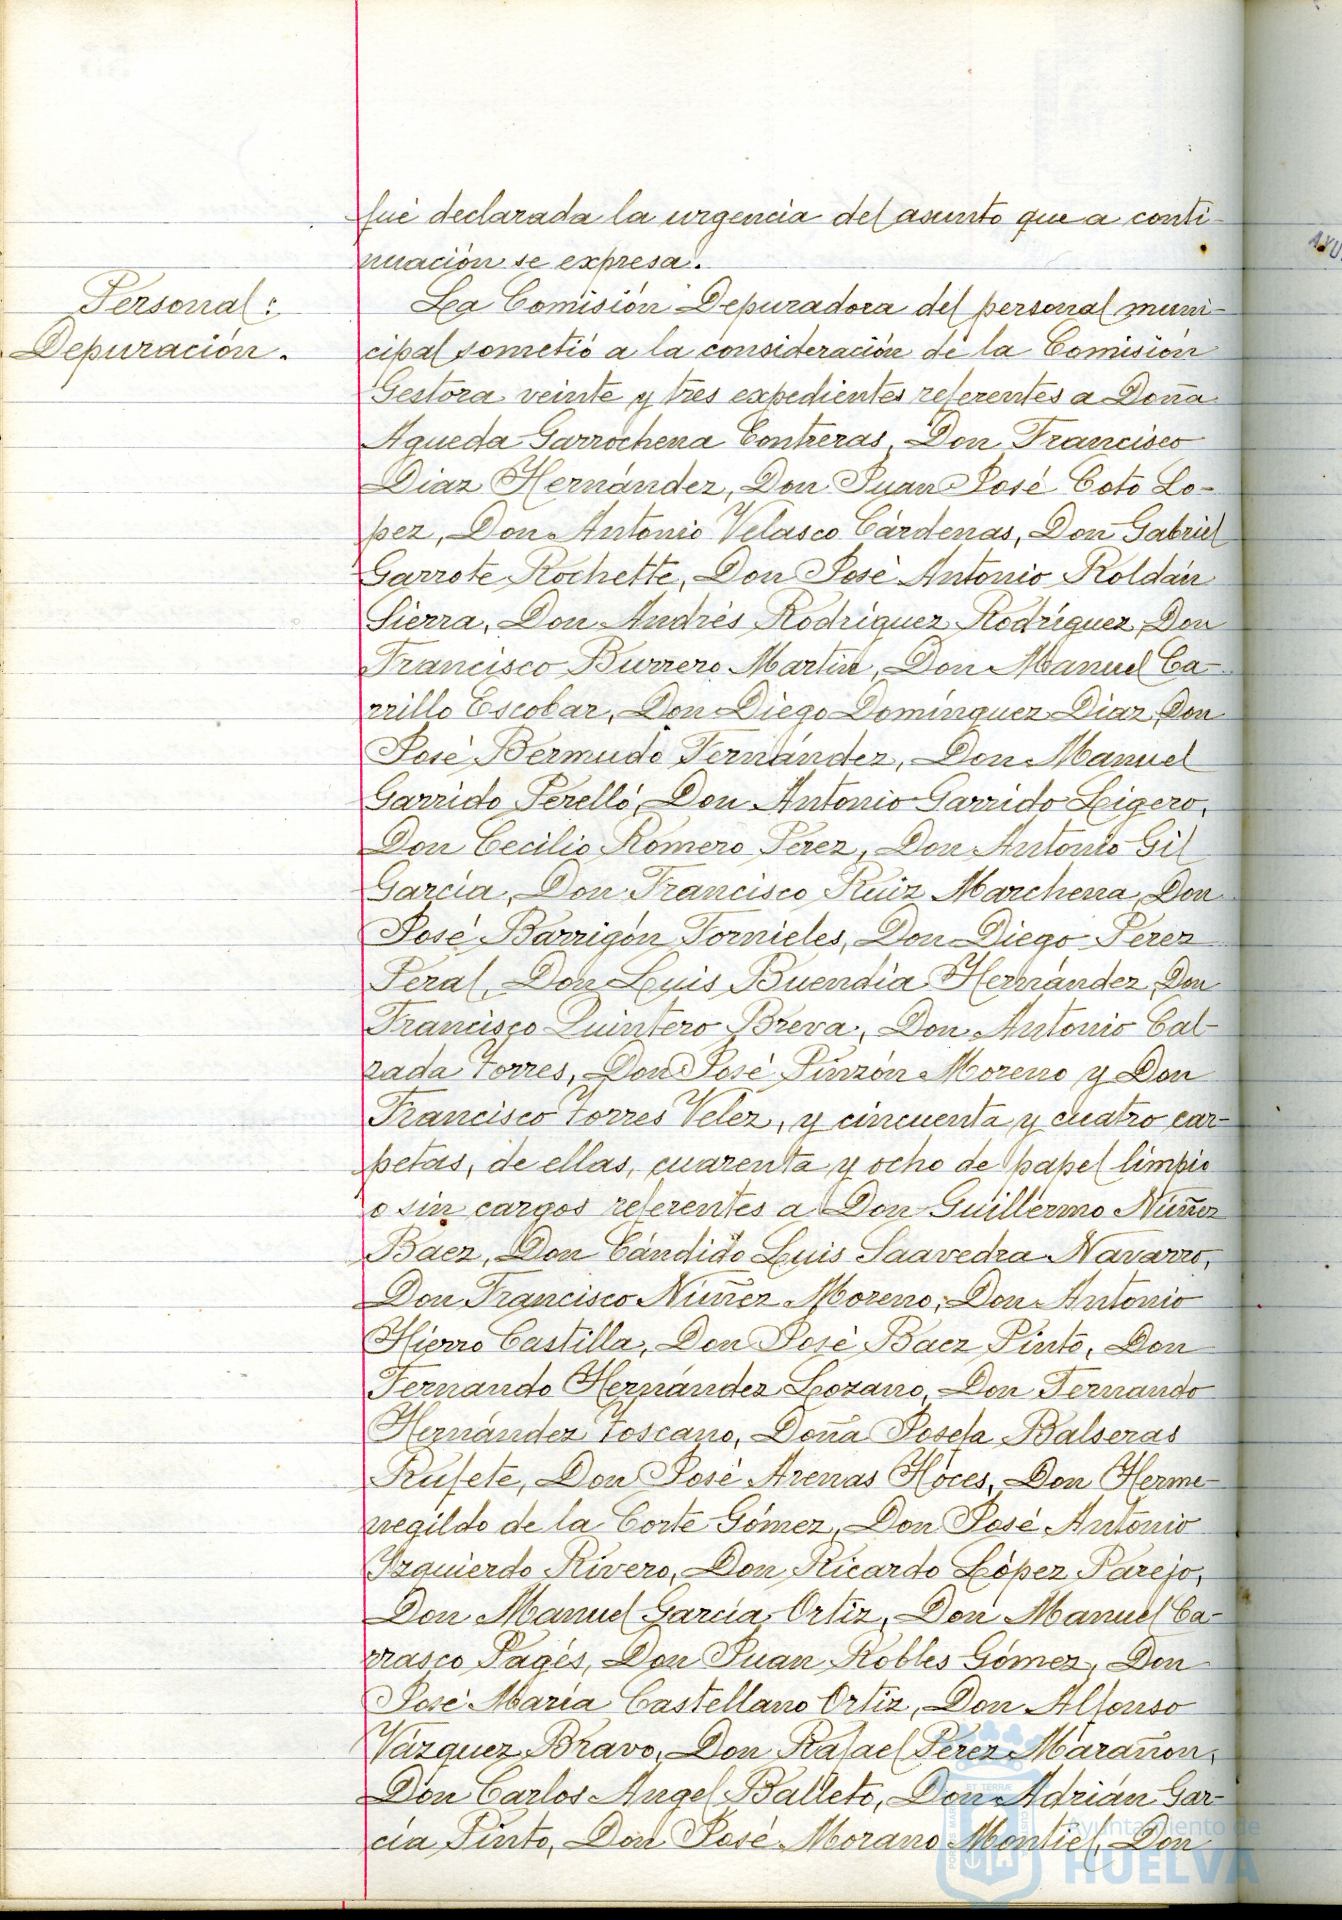 fué declarada la urgencia del asunto que a conti-
nuación se expresa.
Personal:
Depuración.
La Comisión Depuradora del personal muni-
cipal sometió a la consideración de la Comisión
Gestora veinte y tres expedientes referentes a Doña
Agueda Garrochena Contreras, Don Francisco
Diaz Hernández, Don Juan José Coto Lo-
pez, Don Antonio Velasco Cárdenas, Don Gabriel
Garrote Rochette, Don José Antonio Roldán
Sierra, Don Andrés Rodríguez Rodríguez, Don
Francisco Burrero Martin, Don Manuel Ca-
rrillo Escobar, Don Diego Domínguez Diaz, Don
José Bermudo Fernández, Don Manuel
Garrido Perelló, Don Antonio Garrido Ligero,
Don Cecilio Romero Pérez, Don Antonio Gil
García, Don Francisco Ruiz Marchena, Don
José Barrigón Tornieles, Don Diego Pérez
Peral, Don Luis Buendía Hernández, Don
Francisco Quintero Breva, Don Antonio Cal-
zada Torres, Don José Pinzón Moreno y Don
Francisco Torres Velez, y cincuenta y cuatro car-
petas, de ellas, cuarenta y ocho de papel limpio
o sin cargos referentes a Don Guillermo Núñez
Baez, Don Cándido Luis Saavedra Navarro,
Don Francisco Núñez Moreno, Don Antonio
Hierro Castilla, Don José Baez Pinto, Don
Fernando Hernández Lozano, Don Fernando
Hernández Toscano, Doña Josefa Balseras
Rufete, Don José Arenas Hoces, Don Herme-
negildo de la Corte Gómez, Don José Antonio
Yzquierdo Rivero, Don Ricardo López Parejo,
Don Manuel García Ortiz, Don Manuel Ca-
rrasco Pagés, Don Juan Robles Gómez, Don
José María Castellano Ortiz, Don Alfonso
Vázquez Bravo, Don Rafael Pérez Marañon,
Don Carlos Angel Balleto, Don Adrián Gar-
cía Pinto, Don José Morano Montiel, Don
Ayuntamiento de
HUELVA